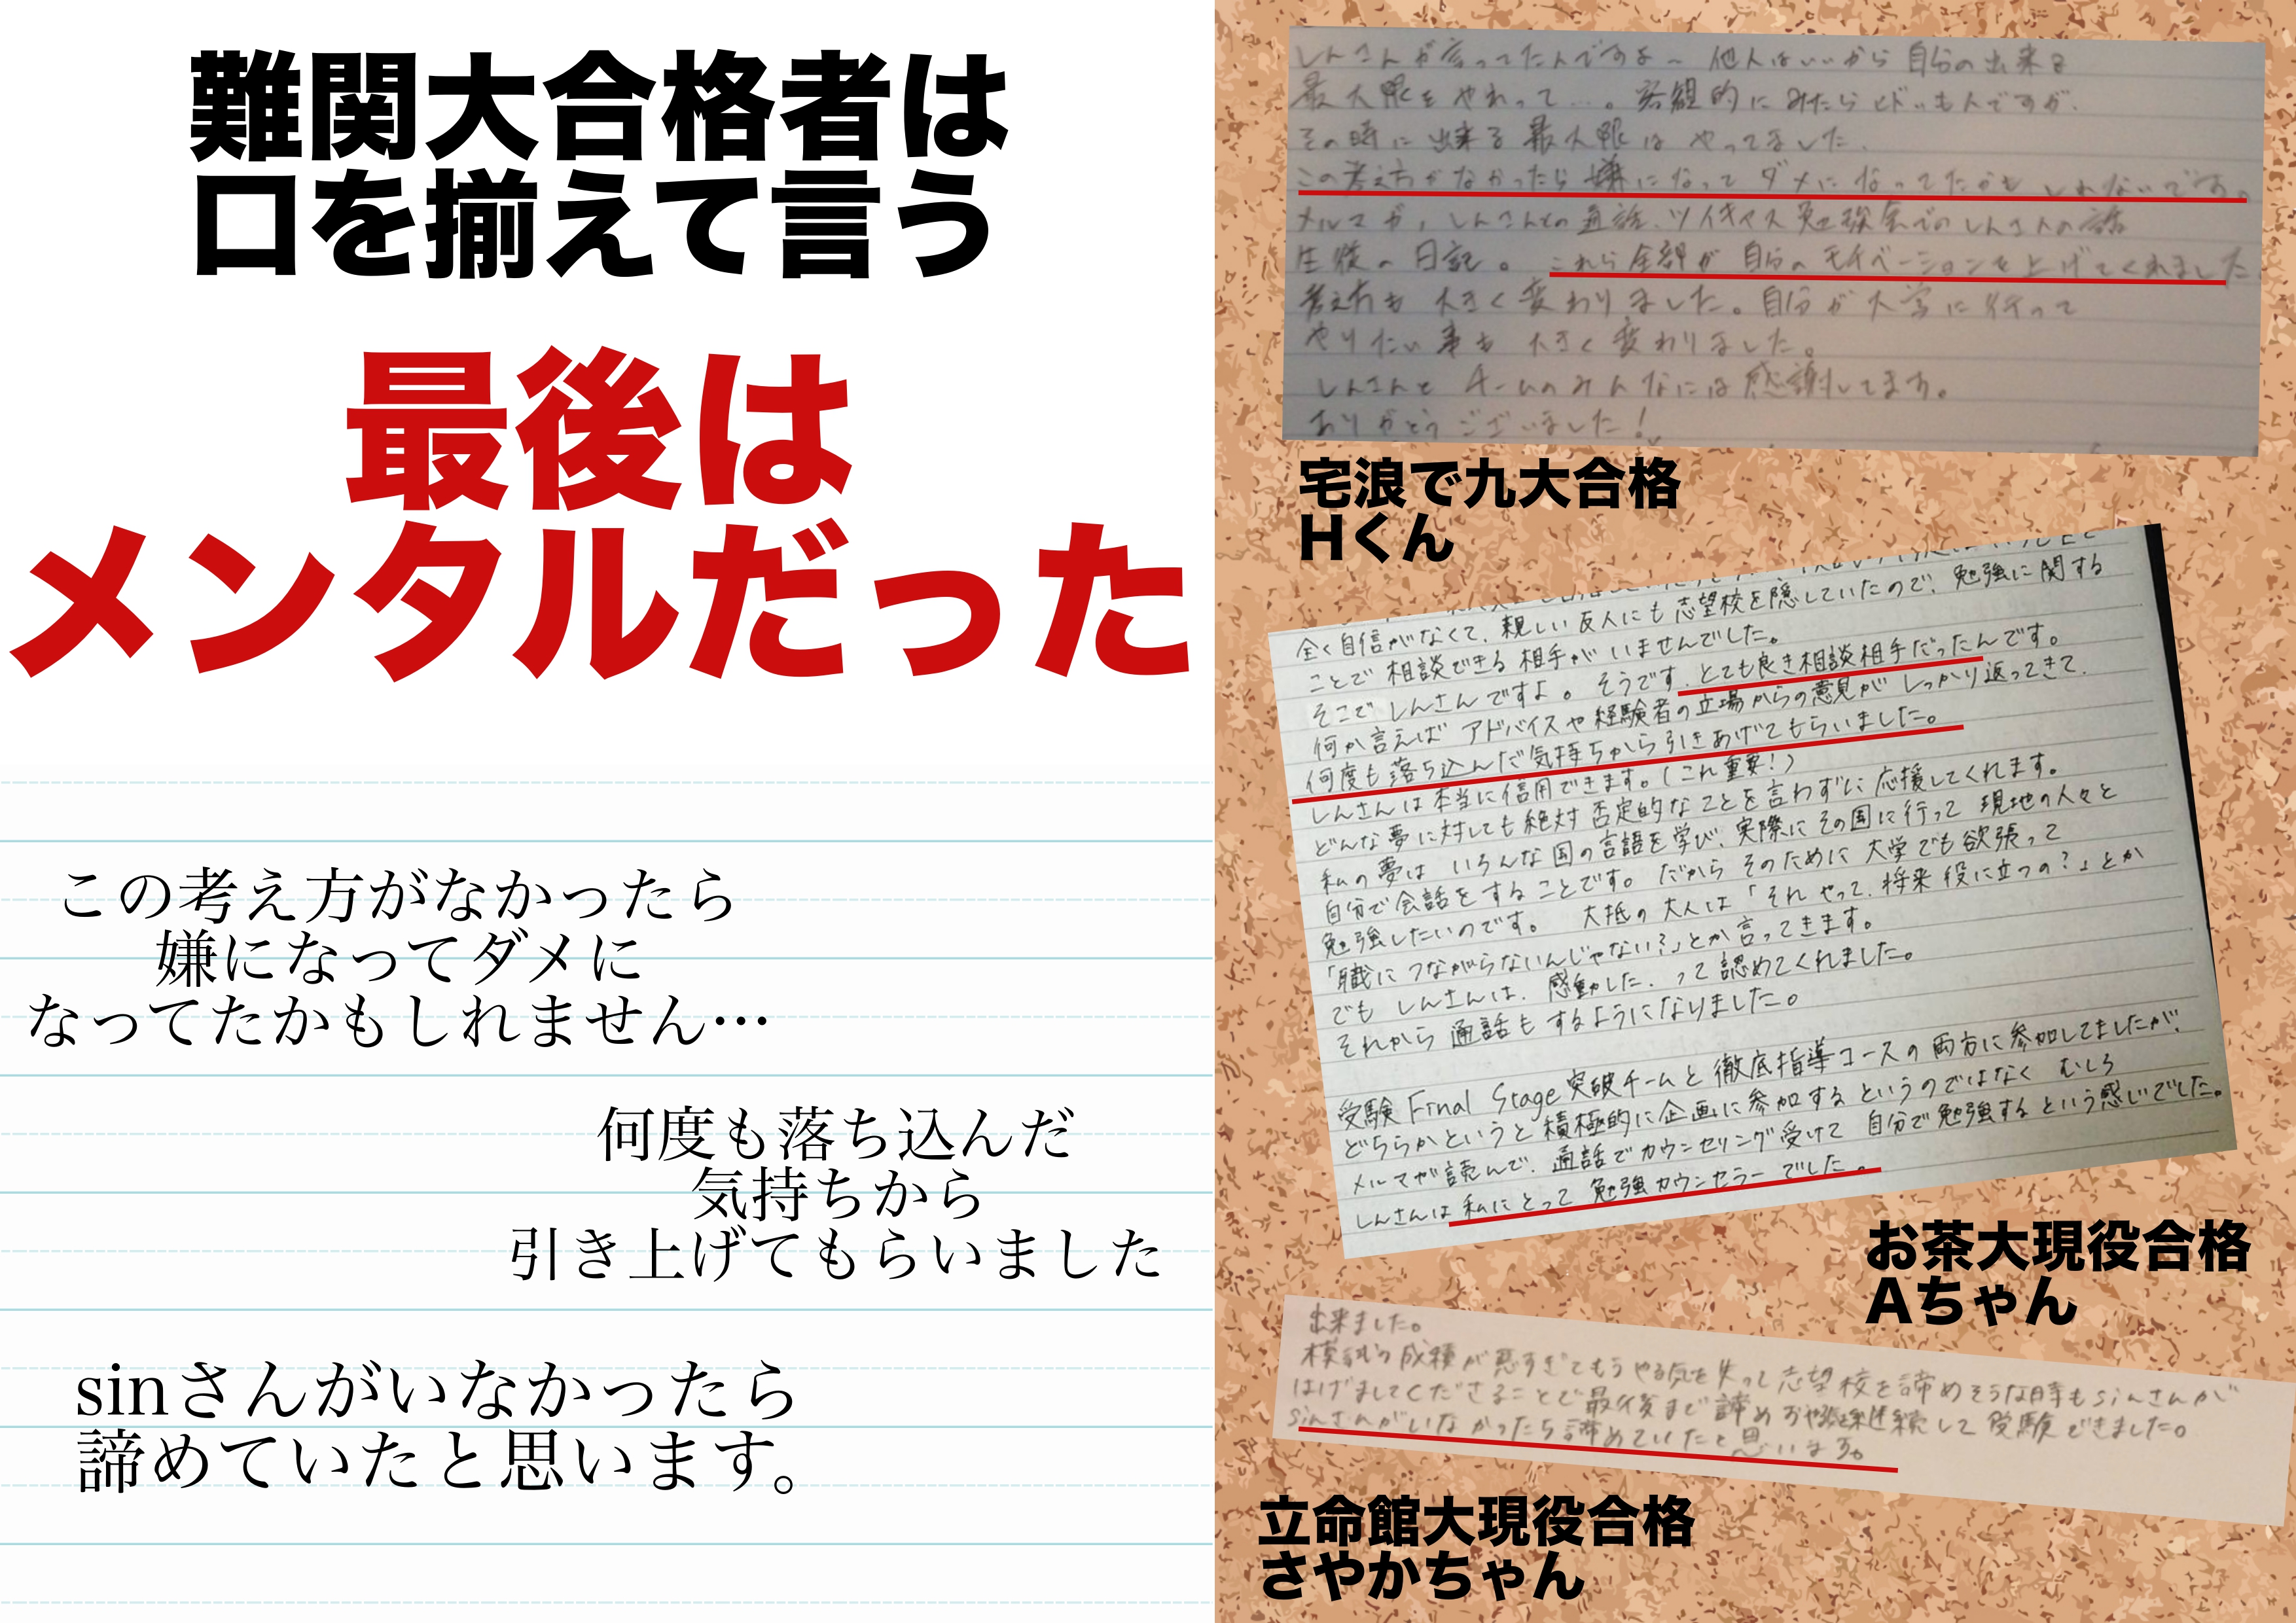 難関大合格者は
口を揃えて言う
最後は
メンタルだった
この考え方がなかったら
嫌になってダメに
なってたかもしれません…
何度も落ち込んだ
気持ちから
引き上げてもらいました
sinさんがいなかったら
諦めていたと思います。
しんさんが言ってたんですよ〜 他人はいいから自分の出来る
最大限をやれって…。客観的にみたらヒドいもんですが、
その時に出来る最大限はやってました。
この考え方がなかったら嫌になってダメになってたかもしれないです。
メルマガ、しんさんとの通話、ツイキャス勉強会でのしんさんの話
生徒の日記。これら全部が自分のモチベーションを上げてくれました
考え方も大きく変わりました。自分が大学に行って
やりたい事も大きく変わりました。
しんさんとチームのみんなには感謝してます。
ありがとうございました!
宅浪で九大合格
Hくん
全く自信がなくて、親しい友人にも志望校を隠していたので、勉強に関する
ことで相談できる相手がいませんでした。
そこでしんさんですよ。そうです、とても良き相談相手だったんです。
何か言えばアドバイスや経験者の立場からの意見がしっかり返ってきて、
何度も落ち込んだ気持ちから引きあげてもらいました。
しんさんは本当に信用できます。(これ重要!)
どんな夢に対しても絶対否定的なことを言わずに応援してくれます。
私の夢はいろんな国の言語を学び、実際にその国に行って現地の人々と
自分で会話をすることです。だからそのために大学でも欲張って
勉強したいのです。大抵の大人は「それやって、将来役に立つの?」とか
「職につながらないんじゃない?」とか言ってきます。
でもしんさんは、感動した、って認めてくれました。
それから通話もするようになりました。
受験Final Stage突破チームと徹底指導コースの両方に参加してましたが、
どちらかというと積極的に企画に参加するというのではなくむしろ
メルマガ読んで、通話でカウンセリング受けて自分で勉強するという感じでした。
しんさんは私にとって勉強カウンセラーでした。
お茶大現役合格
Aちゃん
出来ました。
模試の成績が悪すぎてもうやる気を失って志望校を諦めそうな時もsinさんが
はげましてくださることで最後まで諦めず継続して受験できました。
sinさんがいなかったら諦めていたと思います。
立命館大現役合格
さやかちゃん